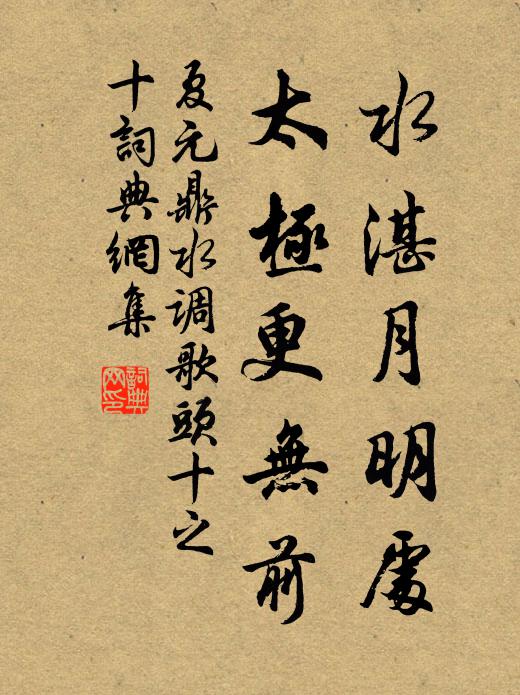 水湛月明處
太極更無前
夏元鼎水调歌頭十之
十詞典網集
詞典网印